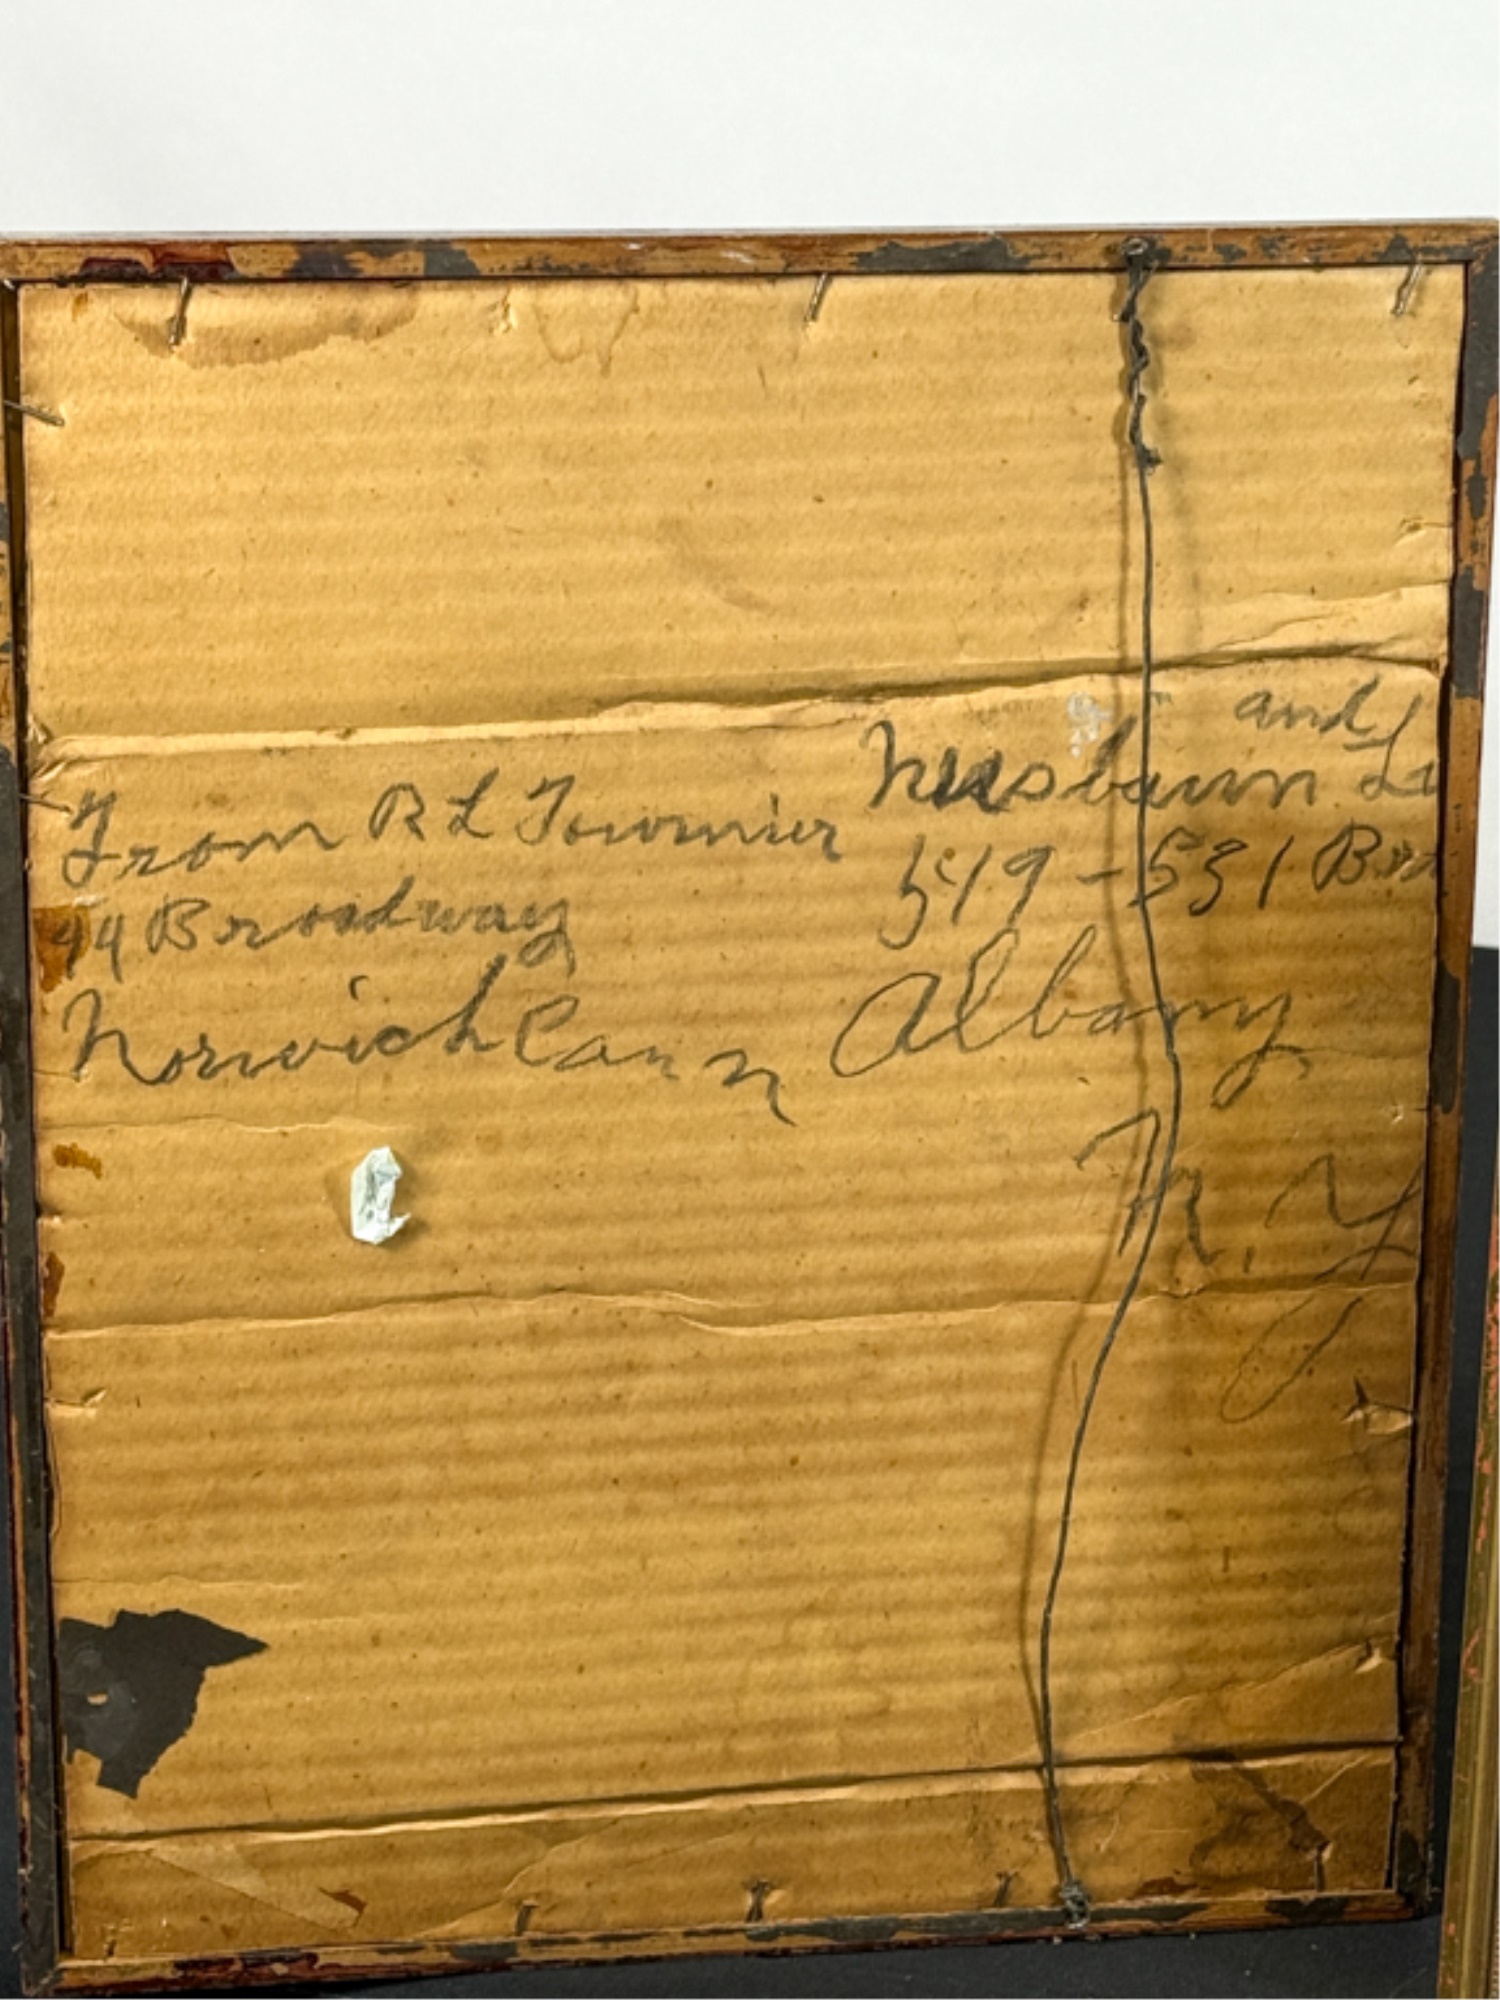 From R L Tournier
44 Broadway
Norwich Conn
and
Nusbaum
519-531
Albany
N. Y